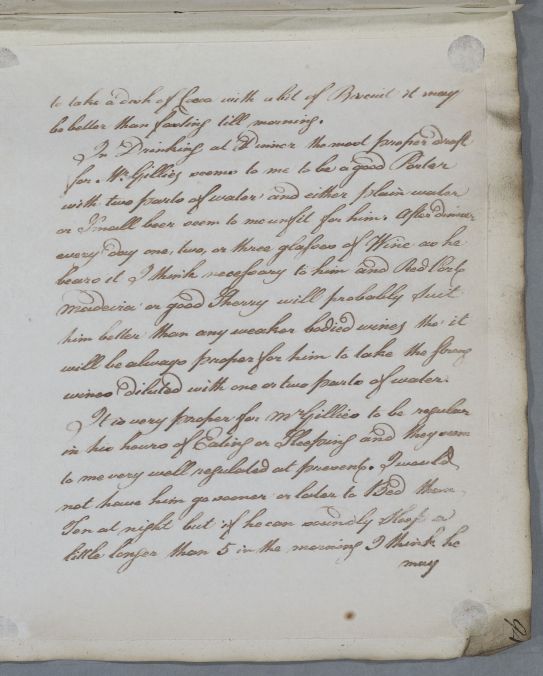 to take a dish of Cocoa with a bit of Biscuit it may
be better than fasting till morning.
In Drinking at Dinner the most proper draft
for Mr Gillies seems to me to be a good Porter
with two parts of water and either plain water
or Small beer seem to me unfit for him. After dinner
every day one, two, or three glasses of Wine as he
bears it I think necessary to him and Red Port
Madeira or good Sherry will probably suit
him better than any weaker bodied wines tho' it
will be always proper for him to take the strong
wines diluted with one or two parts of water.
It is very proper for Mr Gillies to be regular
in his hours of Eating or Sleeping and they seem
to me very well regulated at present. I would
not have him go sooner or later to Bed than
Ten at night but if he can soundly Sleep a
little longer than 5 in the morning I think he
may